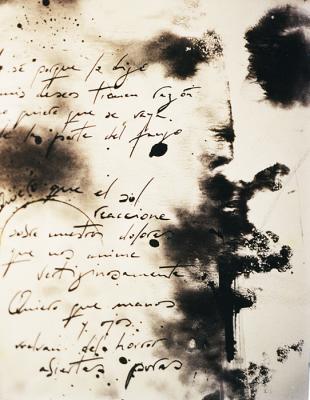 sé porque la dije
mis deseos tienen razón
quiero que se vaya
de la parte del fuego
quiero que el sol
reaccione
sobre nuestros dolores
que nos anime
vertiginosamente
Quiero que manos
y ojos
vuelvan del horror
abiertas puras